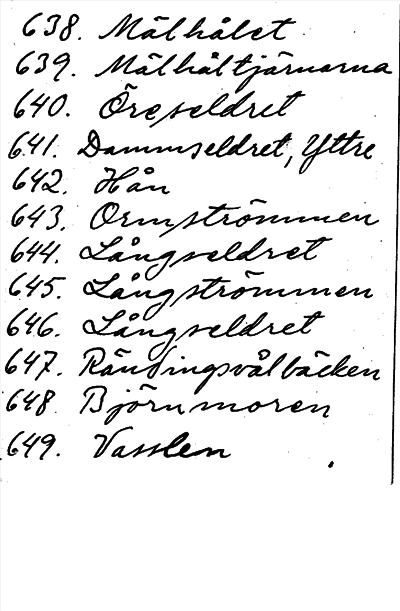 638. Mälhålet
639. Mälhåltjärnarna
640. Öreseldret
641. Dammseldret, Yttre
642. Hån
643. Ormströmmen
644. Långseldret
645. Långströmmen
646. Långseldret
647. Rändingsvålbäcken
648 Björnmoren
649. Vasslen